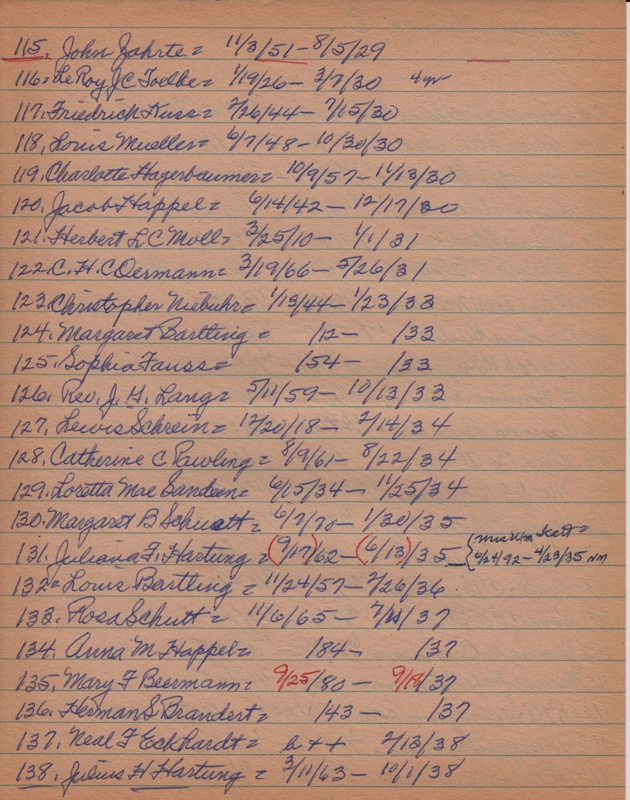 115. John Zahrte = 11/3/51 - 8/5/29
116 = LeRoy J C Toelke = 1/19/26 - 3/7/30 4 yr
117. Friedrich Kuss = 2/26/44 - 7/15/30
118. Louis Mueller = 6/7/48 - 10/30/30
119. Charlotte Hagerbaumer = 10/9/57 - 11/13/30
120. Jacob Happel = 6/14/42 - 12/17/30
121. Herbert L C Moll = 3/25/10 - 1/1/31
122. C. H. C Oermann = 3/19/66 - 5/26/31
123. Christopher Niebuhr = 1/13/44 - 1/23/33
124. Margaret Bartling = /12 - /33
125. Sophia Fauss = /54 - /33
126. Rev. J. H. Lang = 5/11/59 - 10/13/33
127. Lewis Schrein = 12/20/18 - 2/14/34
128. Catherine C Rawling = 8/9/61 - 8/22/34
129. Loretta Mae Sandeen = 6/15/34 - 11/25/34
130. Margaret B Schuett = 6/7/70 - 1/30/35
131. Juliana F. Hartung = (9/17)/62 - (6/13)/35 { Mrs Wm =
6/24/92 - 4/23/35 nm
132 = Louis Bartling = 11/24/57 - 2/26/36
133. Rosa Schutt = 11/6/65 - /37
134. Anna M. Happel = /84 - /37
135. Mary F Beermann = 9/25/80 - 9/18/37
136. Herman S Brandert = /43 - /37
137. Neal F Eckhardt = 2/13/38
138. Julius H Hartung = 3/11/63 - 10/1/38